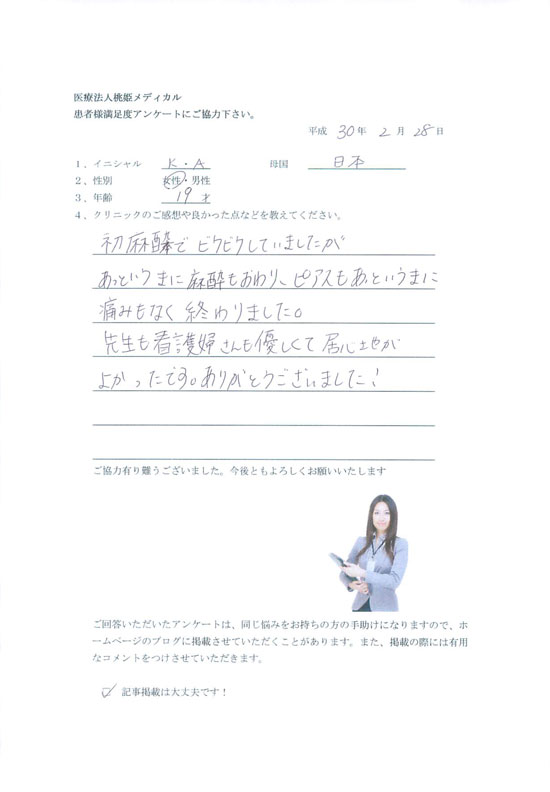 医療法人桃姫メディカル
患者様満足度アンケートにご協力下さい。
平成 30年 2月 28日
1、イニシャル K・A 母国 日本
2、性別 女性・男性
3、年齢 19才
4、クリニックのご感想や良かった点などを教えてください。
初麻酔でビクビクしていましたが
あっというまに麻酔もおわり、ピアスもあっというまに
痛みもなく終わりました。
先生も看護婦さんも優しくて居心地が
よかったです。ありがとうございました!
ご協力有り難うございました。今後ともよろしくお願いいたします
ご回答いただいたアンケートは、同じ悩みをお持ちの方の手助けになりますので、ホ
ームページのブログに掲載させていただくことがあります。また、掲載の際には有用
なコメントをつけさせていただきます。
☑ 記事掲載は大丈夫です!